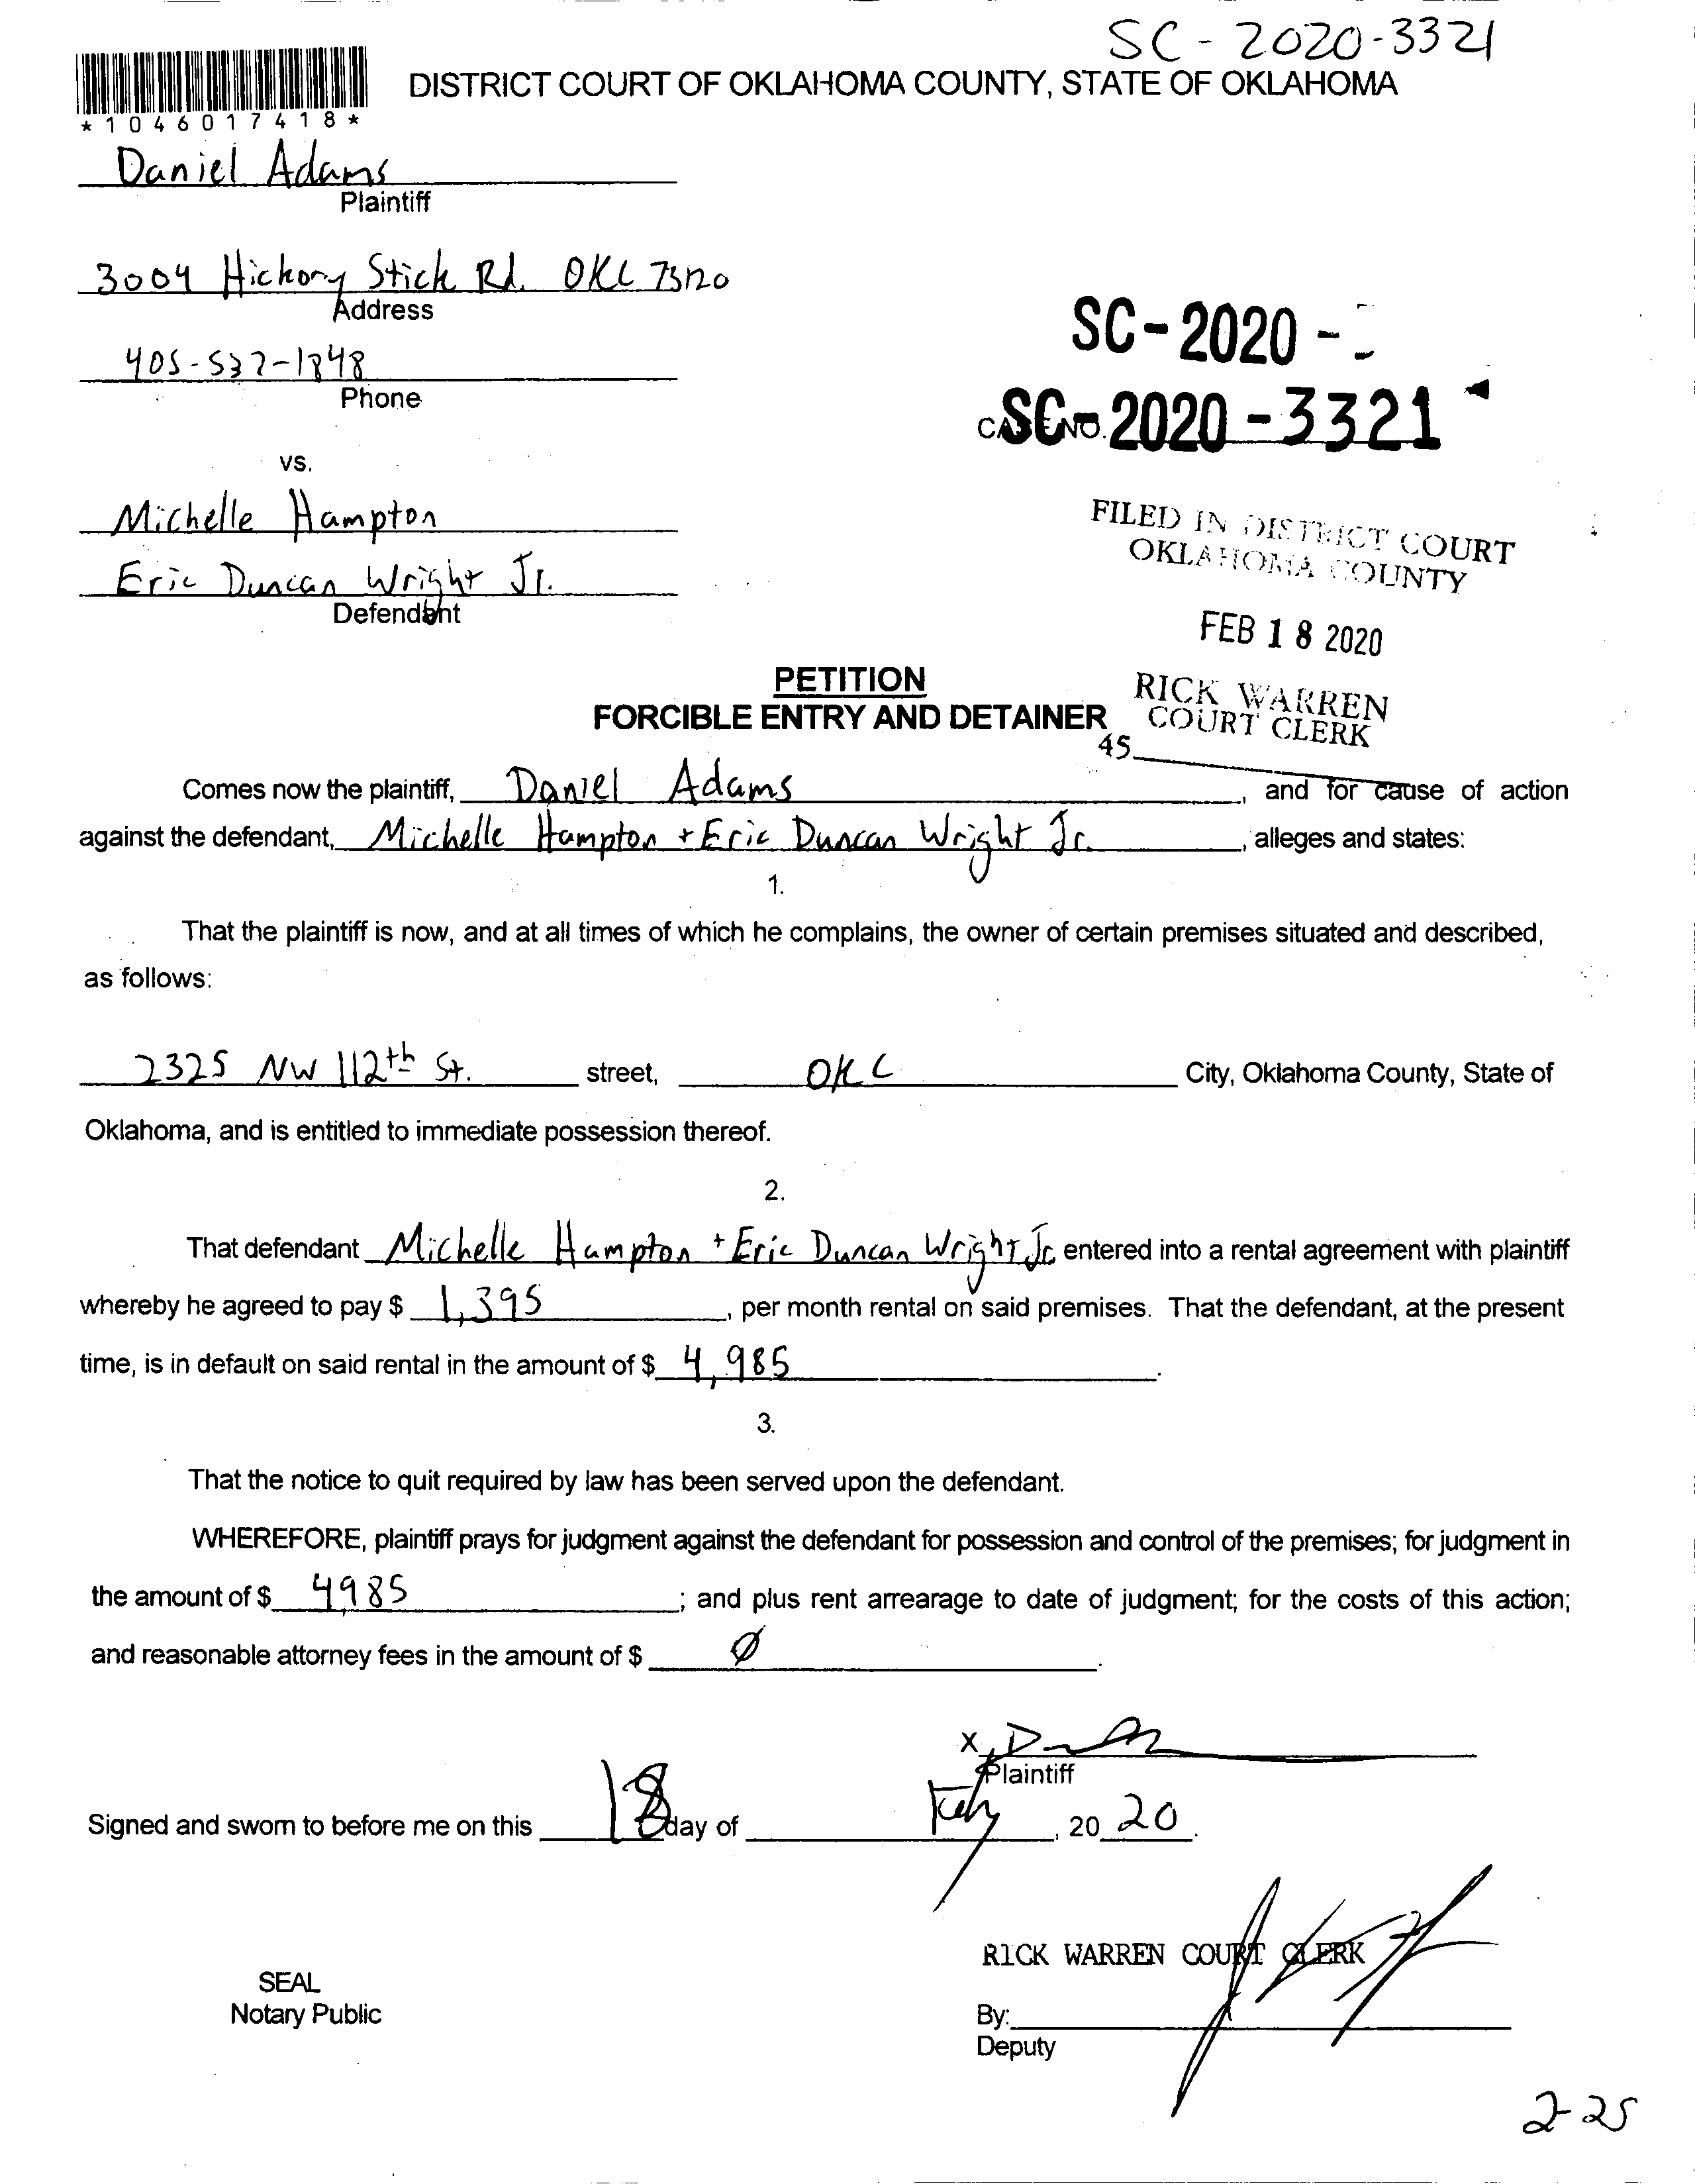 SC-2020-3321
*1046017418*
DISTRICT COURT OF OKLAHOMA COUNTY, STATE OF OKLAHOMA
Daniel Adams
Plaintiff
3004 Hickory Stick Rd. OKC 73120
Address
405-537-1848
Phone
SC-2020 -
CASE NO. SC-2020-3321
vs.
Michelle Hampton
Eric Duncan Wright Jr.
Defendant
FILED IN DISTRICT COURT
OKLAHOMA COUNTY
FEB 18 2020
RICK WARREN
COURT CLERK
45
PETITION
FORCIBLE ENTRY AND DETAINER
Comes now the plaintiff, Daniel Adams, and for cause of action
against the defendant, Michelle Hampton + Eric Duncan Wright Jr., alleges and states:
1.
That the plaintiff is now, and at all times of which he complains, the owner of certain premises situated and described,
as follows:
2325 NW 112th St. street, OKC City, Oklahoma County, State of
Oklahoma, and is entitled to immediate possession thereof.
2.
That defendant Michelle Hampton + Eric Duncan Wright Jr. entered into a rental agreement with plaintiff
whereby he agreed to pay $ 1,395, per month rental on said premises. That the defendant, at the present
time, is in default on said rental in the amount of $ 4,985.
3.
That the notice to quit required by law has been served upon the defendant.
WHEREFORE, plaintiff prays for judgment against the defendant for possession and control of the premises; for judgment in
the amount of $ 4985; and plus rent arrearage to date of judgment; for the costs of this action;
and reasonable attorney fees in the amount of $ Ø.
X
Plaintiff
Signed and sworn to before me on this 18 day of Feb, 2020.
RICK WARREN COURT CLERK
SEAL
Notary Public
By:
Deputy
2-25